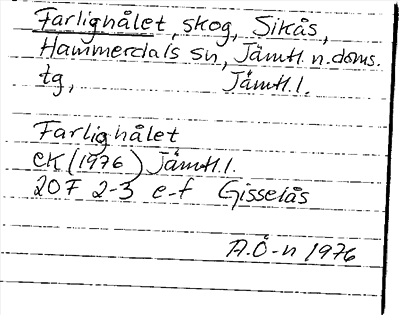 Farlighålet, skog, Sikås,
Hammerdals sn, Jämtl. n. doms.
tg, Jämtl. l.
Farlighålet
ek (1976) Jämtl. l.
20F 2-3 e-f Gisselås
A.Ö-n 1976